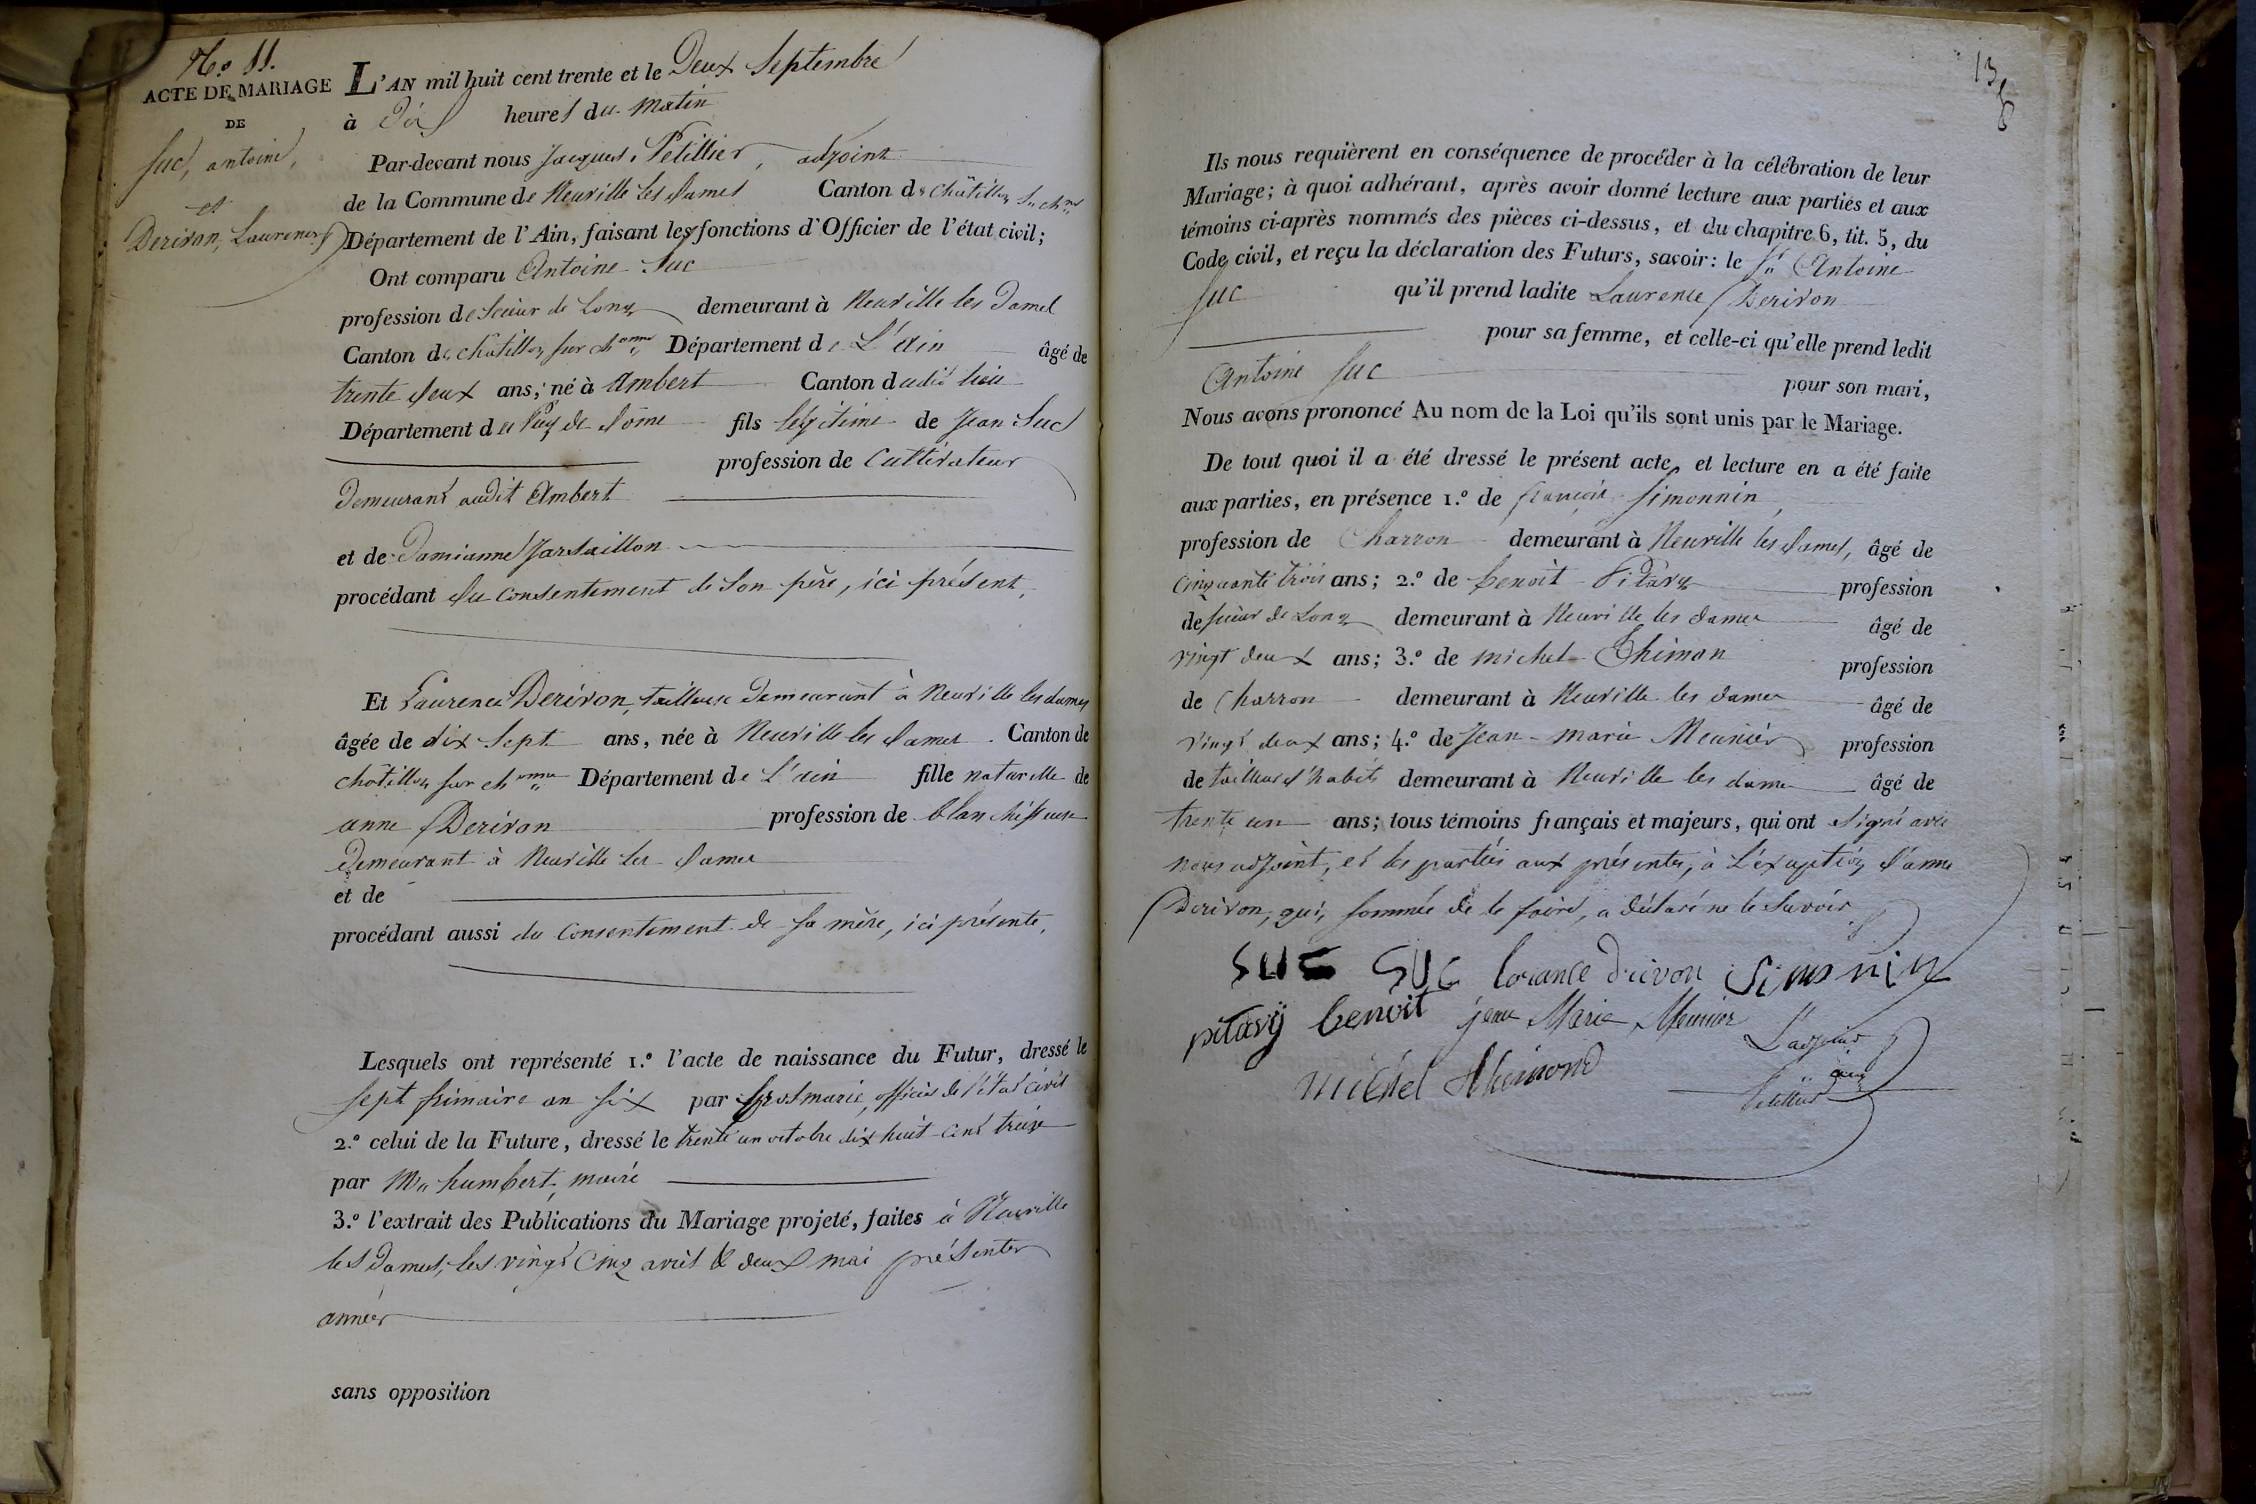 N.o 11.
ACTE DE MARIAGE
DE
Suc, antoine,
et
Derivon, Laurence
L'AN mil huit cent trente et le Deux Septembre
à Dix heures du matin
Par-devant nous Jacques Petillier, adjoint
de la Commune de Neuville les Dames Canton de Châtillon s. ch.ne
Département de l'Ain, faisant les fonctions d'Officier de l'état civil;
Ont comparu Antoine Suc
profession de Scieur de Long demeurant à Neuville les Dames
Canton de châtillon sur ch.onne Département de L'ain âgé de
trente deux ans; né à Ambert Canton dudit lieu
Département du Puy de Dôme fils légitime de Jean Suc
profession de Cultivateur
Demeurant audit Ambert
et de Damianne
procédant du Consentement de Son père, ici présent,
Et Laurence Derivon, tailleuse Demeurant à Neuville les dames
âgée de dix Sept ans, née à Neuville les Dames. Canton de
châtillon sur ch.onne Département de L'ain fille naturelle de
anne Derivon profession de blanchisseuse
Demeurant à Neuville les Dames
et de
procédant aussi du Consentement de Sa mère, ici présente,
Lesquels ont représenté 1.o l'acte de naissance du Futur, dressé le
sept frimaire an six par officier de l'état civil
2.o celui de la Future, dressé le trente un octobre dix huit cent treize
par Mr humbert, maire
3.o l'extrait des Publications du Mariage projeté, faites à Neuville
les Dames, les vingt Cinq avril & deux mai présente
année
sans opposition
13
Ils nous requièrent en conséquence de procéder à la célébration de leur
Mariage; à quoi adhérant, après avoir donné lecture aux parties et aux
témoins ci-après nommés des pièces ci-dessus, et du chapitre 6, tit. 5, du
Code civil, et reçu la déclaration des Futurs, savoir: le Sr Antoine
Suc qu'il prend ladite Laurence Derivon
pour sa femme, et celle-ci qu'elle prend ledit
Antoine Suc pour son mari,
Nous avons prononcé Au nom de la Loi qu'ils sont unis par le Mariage.
De tout quoi il a été dressé le présent acte, et lecture en a été faite
aux parties, en présence 1.o de françois Simonnin,
profession de Charron demeurant à Neuville les Dames, âgé de
cinquante trois ans; 2.o de benoit Pitavy profession
de scieur de Long demeurant à Neuville les dames âgé de
vingt deux ans; 3.o de michel Thimon profession
de Charron demeurant à Neuville les dames âgé de
vingt deux ans; 4.o de Jean-marie Meunier profession
de tailleur d'habits demeurant à Neuville les dames âgé de
trente un ans; tous témoins français et majeurs, qui ont signé avec
nous adjoint, et les parties aux présentes, à L'exception d'anne
Derivon, qui, sommée de le faire, a déclaré ne le Savoir
SUC SUC lorance drivon Simonnin
pitavy benoit jean Marie Meunier L'adjoint
michel thimond Petillier